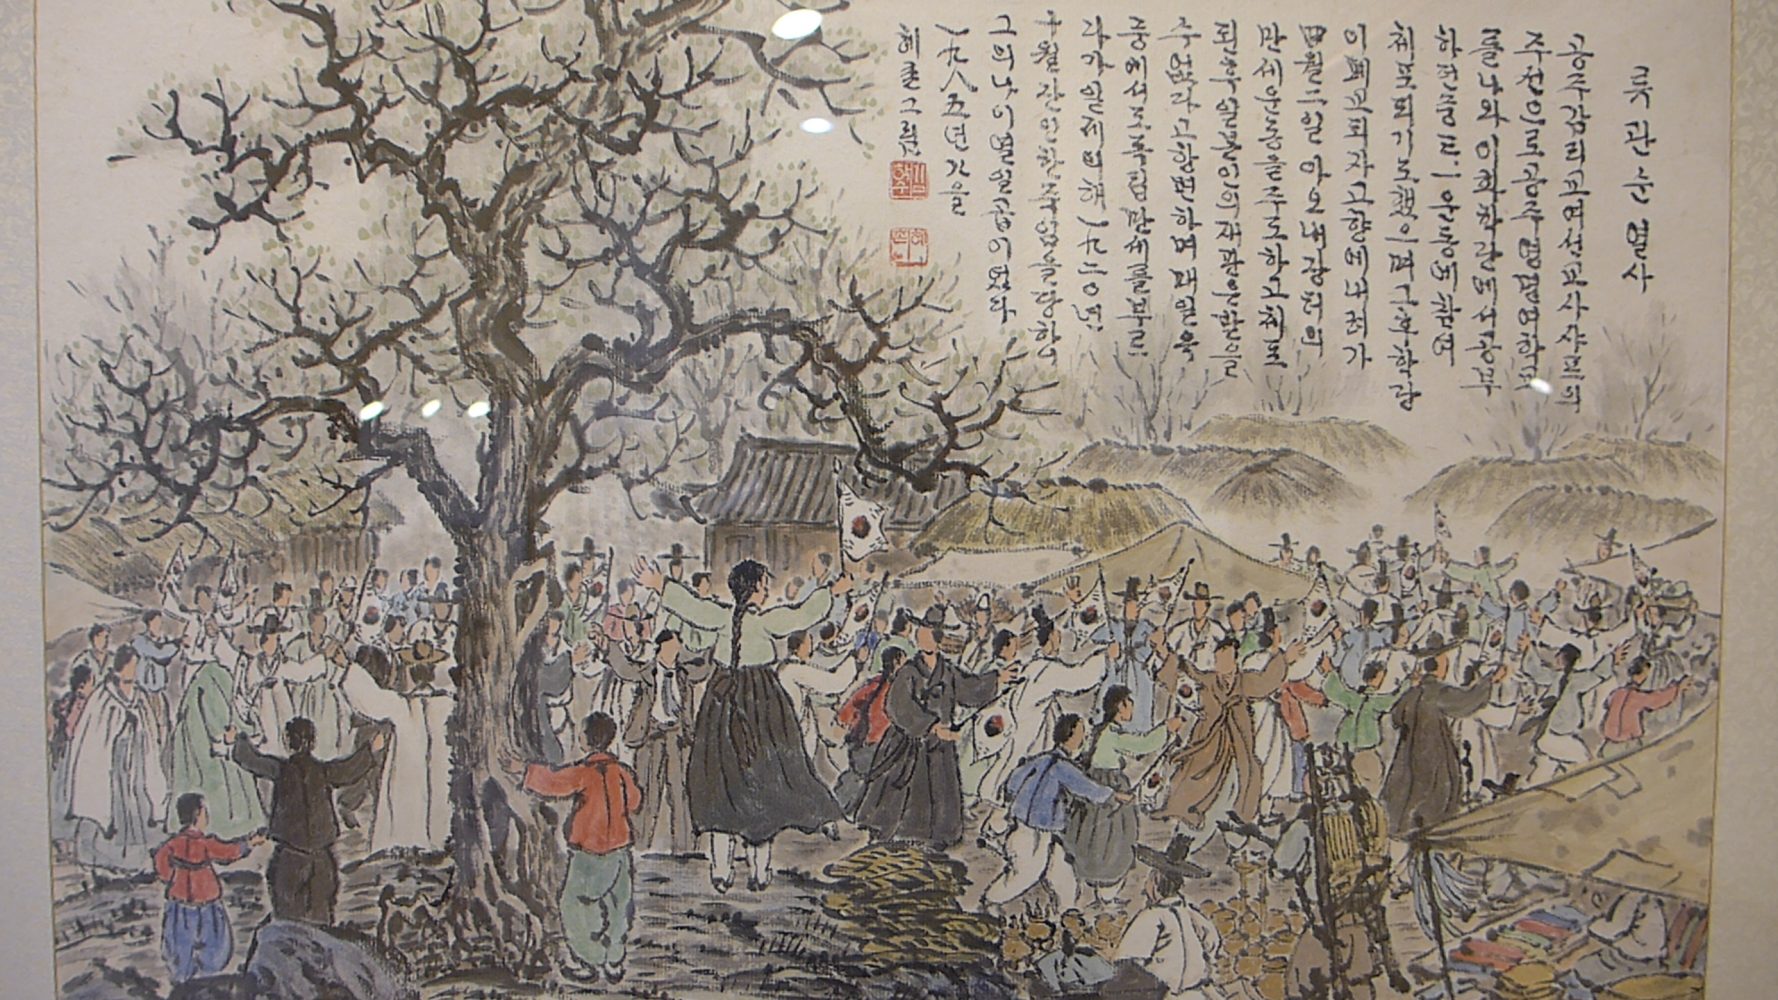 류관순 열사
공주감리교여선교사 샤프의
주선으로 공주영명여학교
를 나와 이화학당에서 공부
하던중 三·一운동에 참여
체포되기도 했으며 그후 학당
이 폐교되자 고향에 내려가
四월 一일 아오내 장터의
만세운동을 주도하고 체포
된후 일본인의 재판은 받을
수 없다고 항변하며 매일 옥
중에서도 독립만세를 부르
다가 일제에 의해 一九二〇년
구월 잔인한 죽임을 당하니
그의 나이 열일곱이었다
一九八五년 가을
혜촌 그림
김학수
혜촌